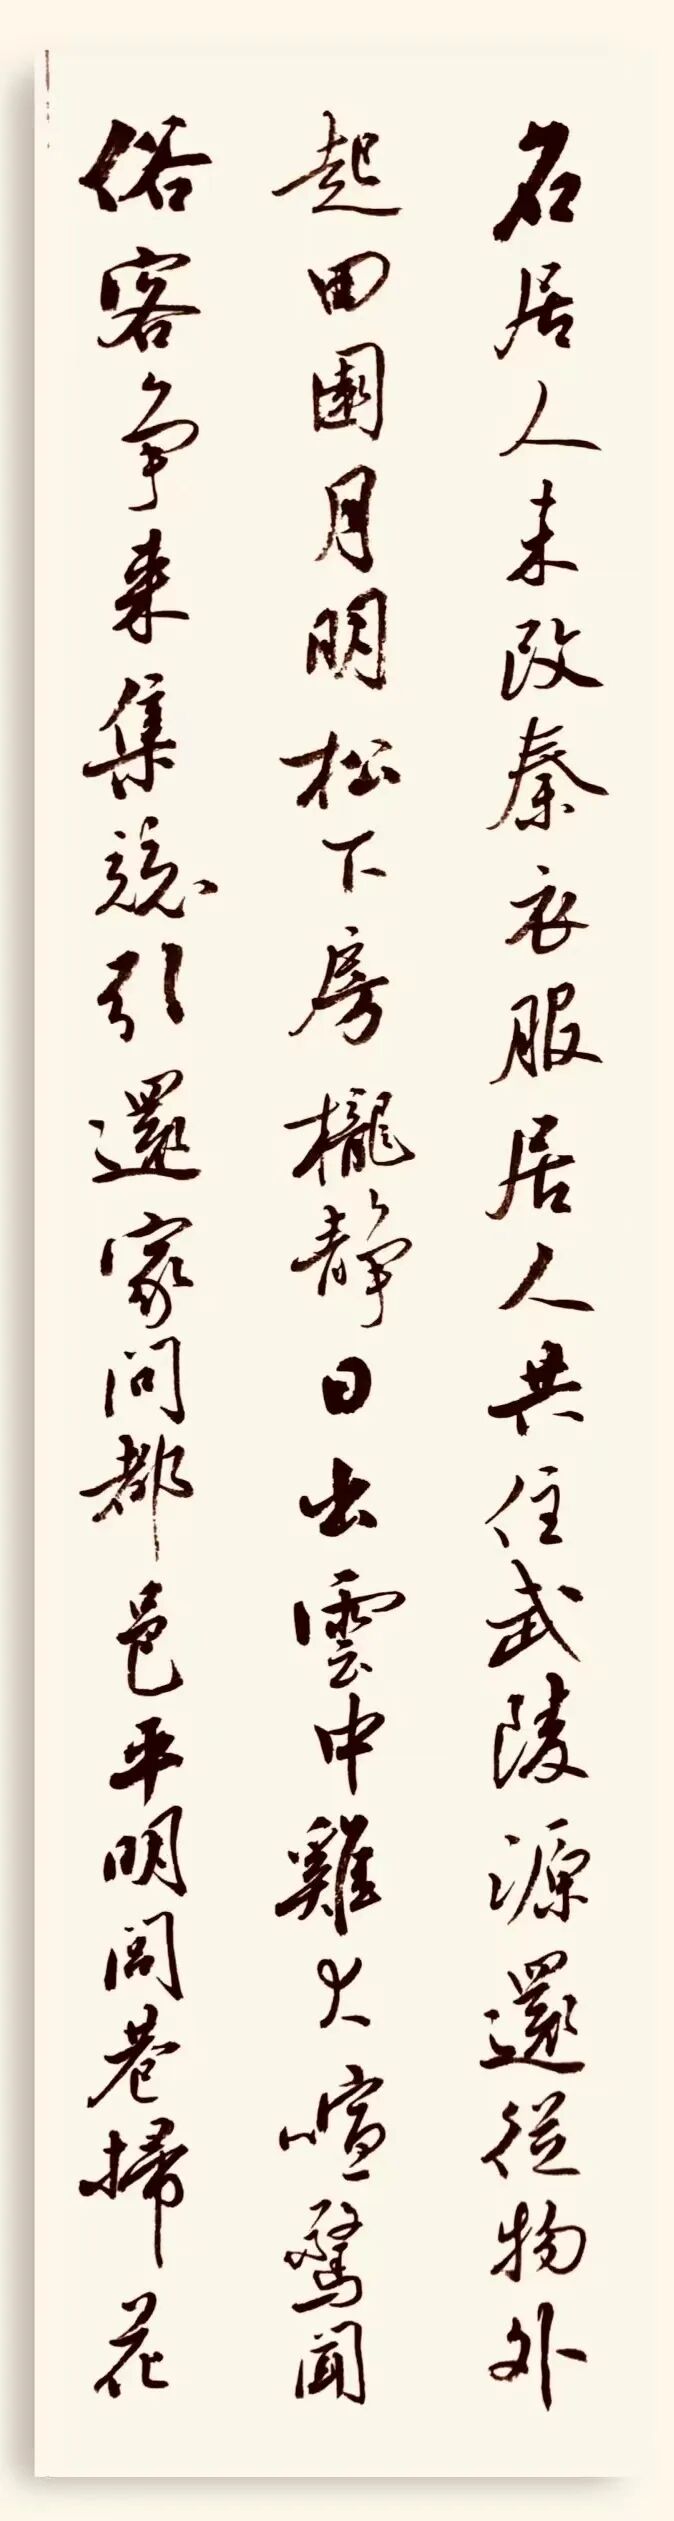 名居人未改秦衣服居人共住武陵源還從物外
起田園月明松下房櫳靜日出雲中雞犬喧驚聞
俗客爭來集競引還家問都邑平明閭巷掃花